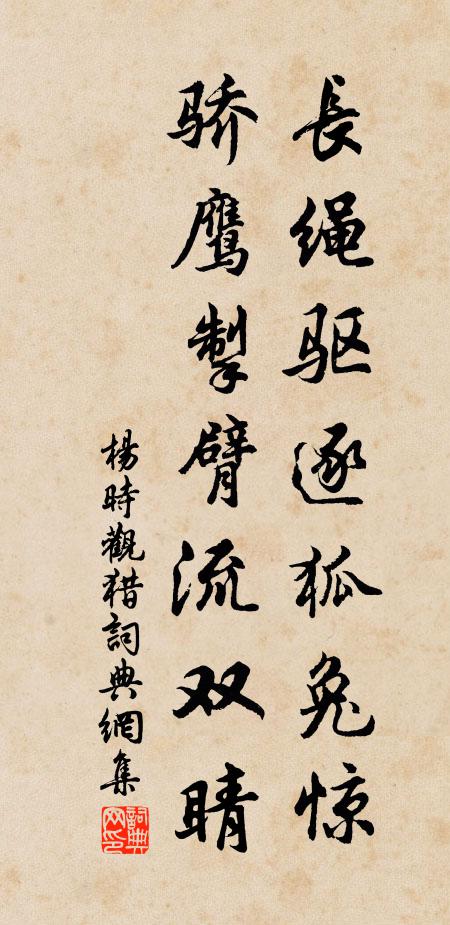 長绳驱逐狐兔惊
骄鹰掣臂流双睛
楊時觀猎詞典網集
詞典
网印